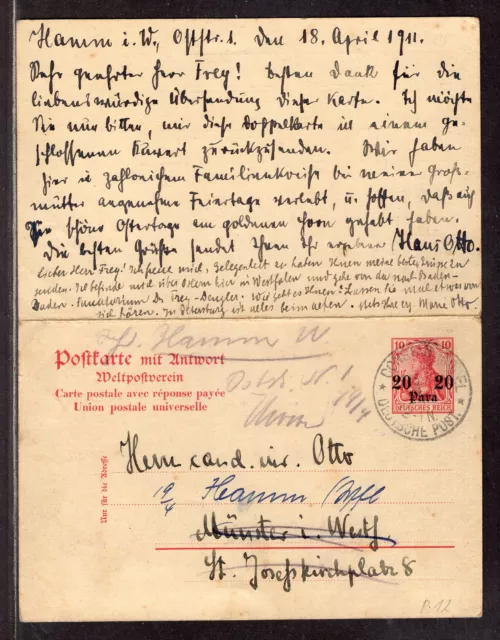 Hamm i. W., Oststr. 1. Den 18. April 1911.
Sehr geehrter Herr Frey! Besten Dank für die
liebenswürdige Übersendung dieser Karte. Ich möchte
Sie nur bitten, mir diese Doppelkarte in einem ge-
schlossenen Kuvert zurückzusenden. Wir haben
hier in zahlreichem Familienkreise bei meiner Groß-
mutter angenehme Feiertage verlebt, u. hoffen, daß auch
Sie schöne Ostertage am goldenen Horn gehabt haben.
Die besten Grüße sendet Ihnen Ihr ergebener Hans Otto.
Lieber Herr Frey! Ich freue mich, Gelegenheit zu haben Ihnen meine besten Grüße zu
senden. Ich befinde mich über Ostern hier in Westfalen und gehe von da nach Baden-
Baden. Sanatorium Dr. Frey - Dengler. Wie geht es Ihnen? Lassen Sie mal etwas von
sich hören. In Petersburg ist alles beim alten. Marie Otto.
Hamm W
Postkarte mit Antwort
Weltpostverein
Carte postale avec réponse payée
Union postale universelle
Nur für die Adresse
Oststr. N. 1
19/4
10 10
20 20
Para
DEUTSCHES REICH
DEUTSCHE POST
Herrn cand. iur. Otto
19/4 Hamm
Münster i. Westf.
St. Josefskirchplatz 8
P. 12